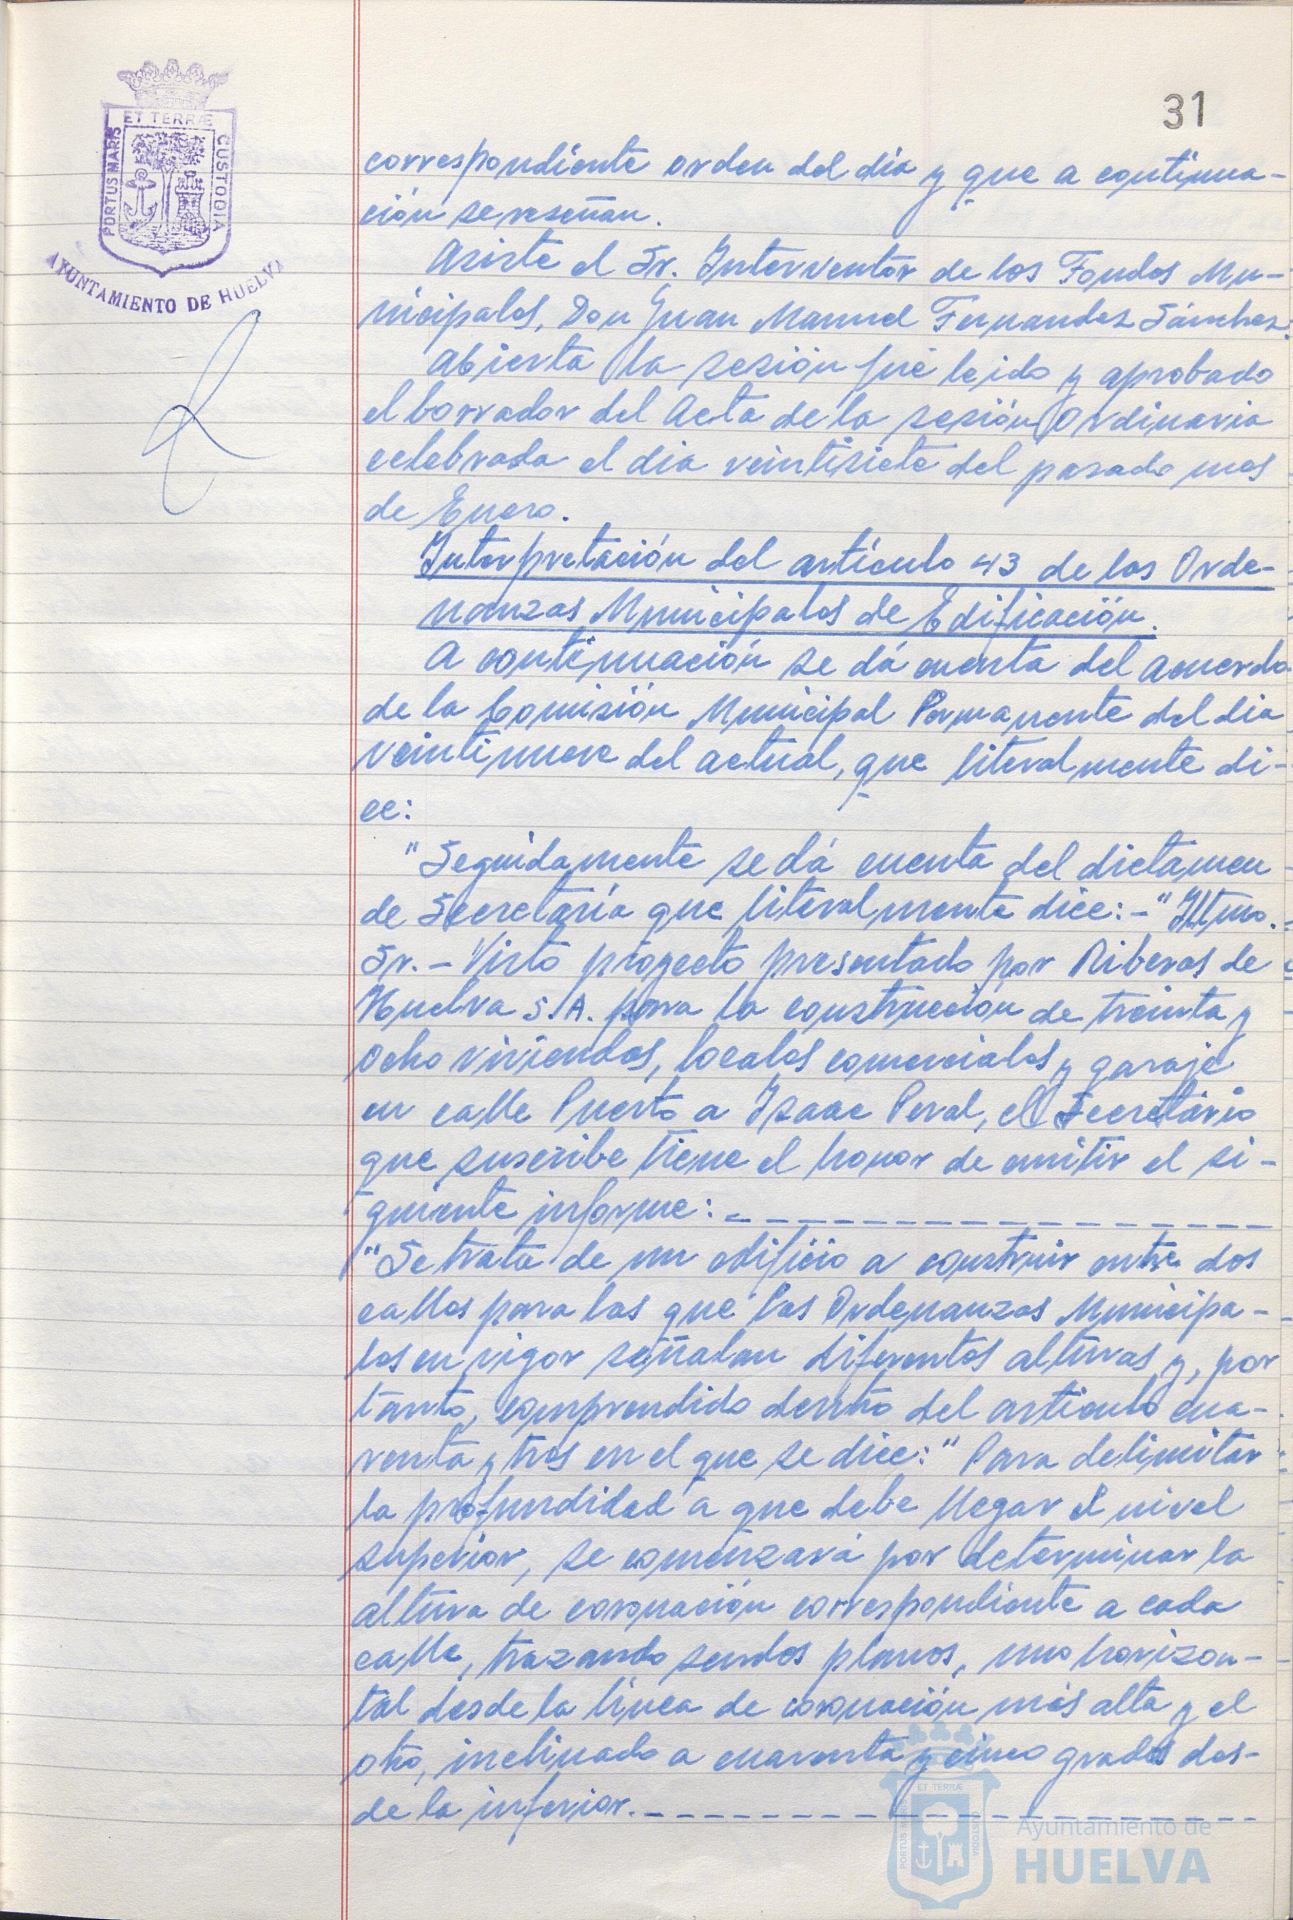 31
ET TERRÆ
PORTUS MARIS
CUSTODIA
AYUNTAMIENTO DE HUELVA
correspondiente orden del dia y que a continua-
ción se reseñan.
Asiste el Sr. Interventor de los Fondos Mu-
nicipales, Don Juan Manuel Fernandez Sánchez.
Abierta la sesión fué leido y aprobado
el borrador del Acta de la sesión Ordinaria
celebrada el dia veintisiete del pasado mes
de Enero.
Interpretación del artículo 43 de las Orde-
nanzas Municipales de Edificación.
A continuación se dá cuenta del acuerdo
de la Comisión Municipal Permanente del dia
veintinueve del actual, que literalmente di-
ce:
"Seguidamente se dá cuenta del dictamen
de Secretaría que literalmente dice:-"Iltmo.
Sr.- Visto proyecto presentado por Riberas de
Huelva S.A. para la construcción de treinta y
ocho viviendas, locales comerciales y garaje
en calle Puerto a Isaac Peral, el Secretario
que suscribe tiene el honor de emitir el si-
guiente informe:
"Se trata de un edificio a construir entre dos
calles para las que las Ordenanzas Municipa-
les en vigor señalan diferentes alturas y, por
tanto, comprendido dentro del articulo cua-
renta y tres en el que se dice:" Para delimitar
la profundidad a que debe llegar el nivel
superior, se comenzará por determinar la
altura de coronación correspondiente a cada
calle, trazando sendos planos, uno horizon-
tal desde la línea de coronación más alta y el
otro, inclinado a cuarenta y cinco grados des-
de la inferior.
ET TERRÆ
PORTUS MARIS
CUSTODIA
Ayuntamiento de
HUELVA